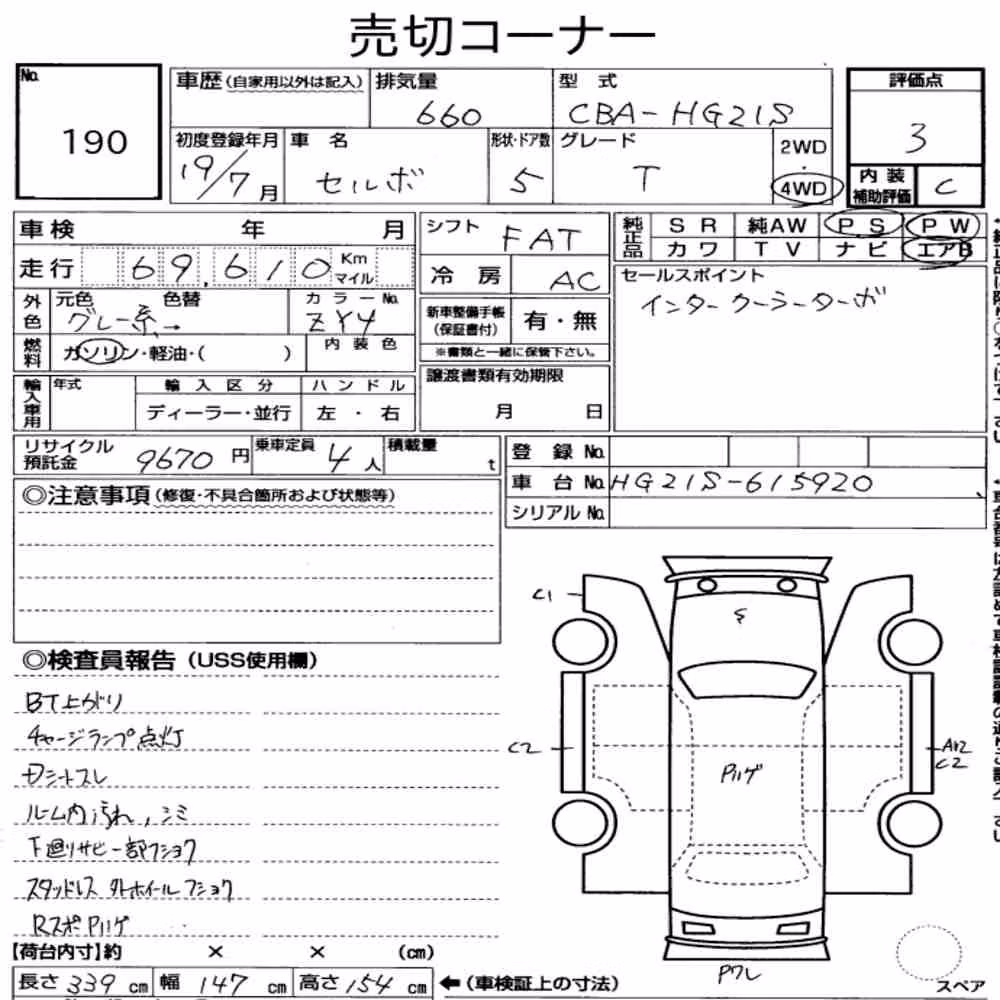 売切コーナー
No.
190
車歴(自家用以外は記入)
排気量
660
型 式
CBA-HG21S
評価点
3
内装
補助評価
C
初度登録年月
19/7月
車 名
セルボ
形状・ドア数
5
グレード
T
2WD
・
4WD
車検 年 月
走行 69,610 Km
マイル
シフト
FAT
冷 房
AC
純正品
S R 純AW P S P W
カワ T V ナビ エアB
セールスポイント
インタークーラーターボ
外色
元色 色替
グレー系→
カラーNo.
ZY4
新車整備手帳
(保証書付)
有・無
※書類と一緒に保管下さい。
燃料
ガソリン・軽油・( )
内 装 色
譲渡書類有効期限
月 日
輸入車用
年式
輸 入 区 分
ハ ン ド ル
ディーラー・並行
左 ・ 右
リサイクル
預託金
9670 円
乗車定員
4 人
積載量
t
登 録 No.
車 台 No.
HG21S-615920
シリアル No.
◎注意事項(修復・不具合箇所および状態等)
◎検査員報告(USS使用欄)
BT上がり
チャージランプ点灯
Dシートスレ
ルーム内汚れ,シミ
下廻りサビ一部フショク
スタッドレス 外ホイールフショク
Rスポ Pハゲ
C1
C2
Pハゲ
C2
Pワレ
スペア
【荷台内寸】約 × × (cm)
長さ 339 cm 幅 147 cm 高さ 154 cm
←(車検証上の寸法)